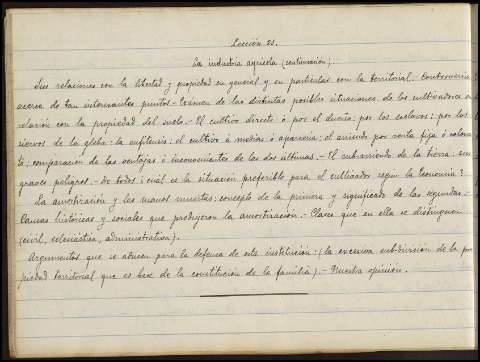 Lección 25.
La industria agrícola (continuación).
Sus relaciones con la libertad y propiedad en general y en particular con la territorial.- Controversia
acerca de tan interesantes puntos.- Examen de las distintas posibles situaciones de los cultivadores en
relación con la propiedad del suelo.- El cultivo directo ó por el dueño; por los esclavos; por los
siervos de la gleba; la enfiteusis; el cultivo á medias ó aparcería; el arriendo por renta fija ó colona-
to; comparación de las ventajas é inconvenientes de los dos últimos.- El subarriendo de la tierra; sus
graves peligros.- De todos ¿cuál es la situación preferible para el cultivador segun la Economía?
La amortización y las manos muertas; concepto de la primera y significado de las segundas.-
Causas históricas y sociales que produjeron la amortización.- Clases que en ella se distinguen
(civil, eclesiástica, administrativa).
Argumentos que se aducen para la defensa de esta institución.- (la excesiva subdivisión de la pro-
piedad territorial que es base de la constitución de la familia).- Nuestra opinión.